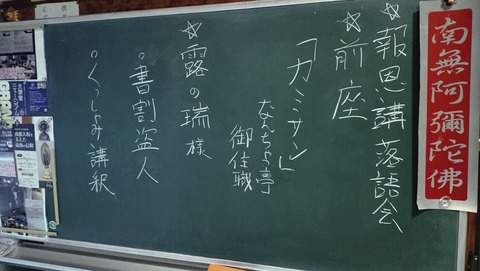 南無阿彌陀佛
☆報恩講落語会
☆前座
「カミサン」
御住職
☆露の瑞様
。書割盗人
。くっしゃみ講釈